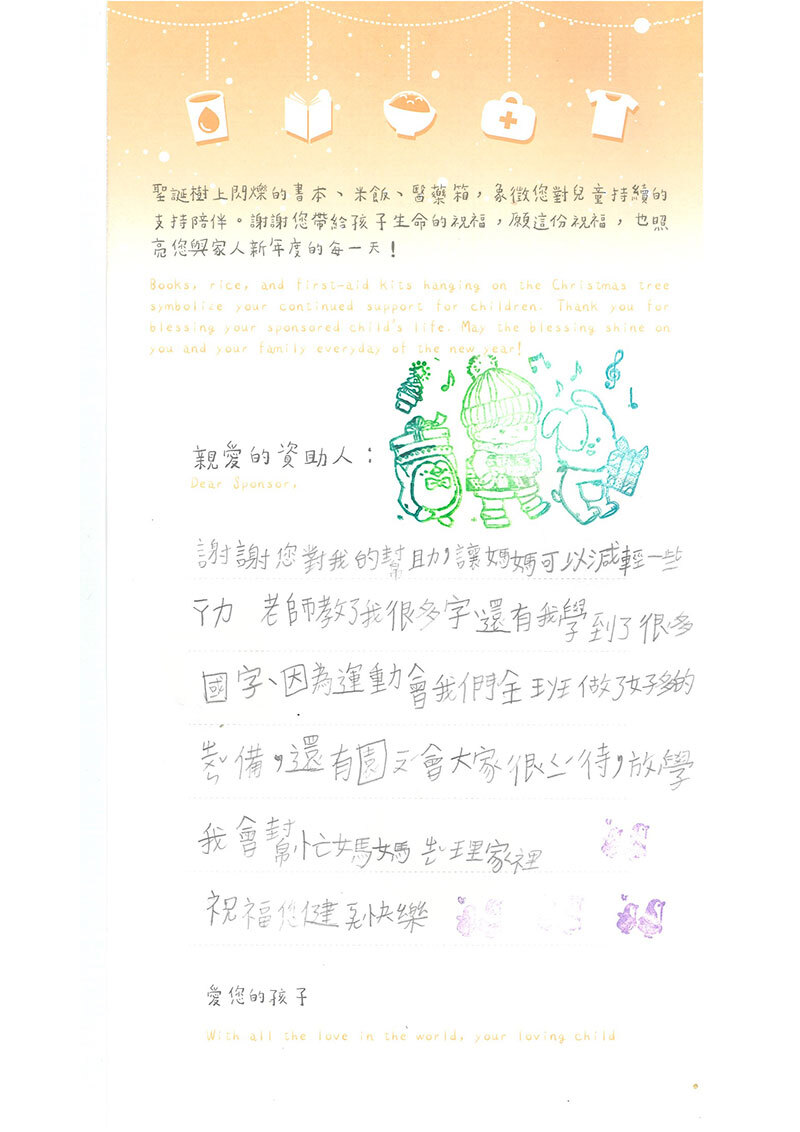 聖誕樹上閃爍的書本、米飯、醫藥箱，象徵您對兒童持續的
支持陪伴。謝謝您帶給孩子生命的祝福，願這份祝福，也照
亮您與家人新年度的每一天！
Books, rice, and first-aid kits hanging on the Christmas tree
symbolize your continued support for children. Thank you for
blessing your sponsored child's life. May the blessing shine on
you and your family everyday of the new year!
親愛的資助人：
Dear Sponsor,
謝謝您對我的幫助，讓媽媽可以減輕一些
老師教了我很多字還有我學到了很多
國字、因為運動會我們全班做了好多的
備，還有園會大家很待，放學
我會幫忙媽媽理家裡
祝福您健快樂
愛您的孩子
With all the love in the world, your loving child